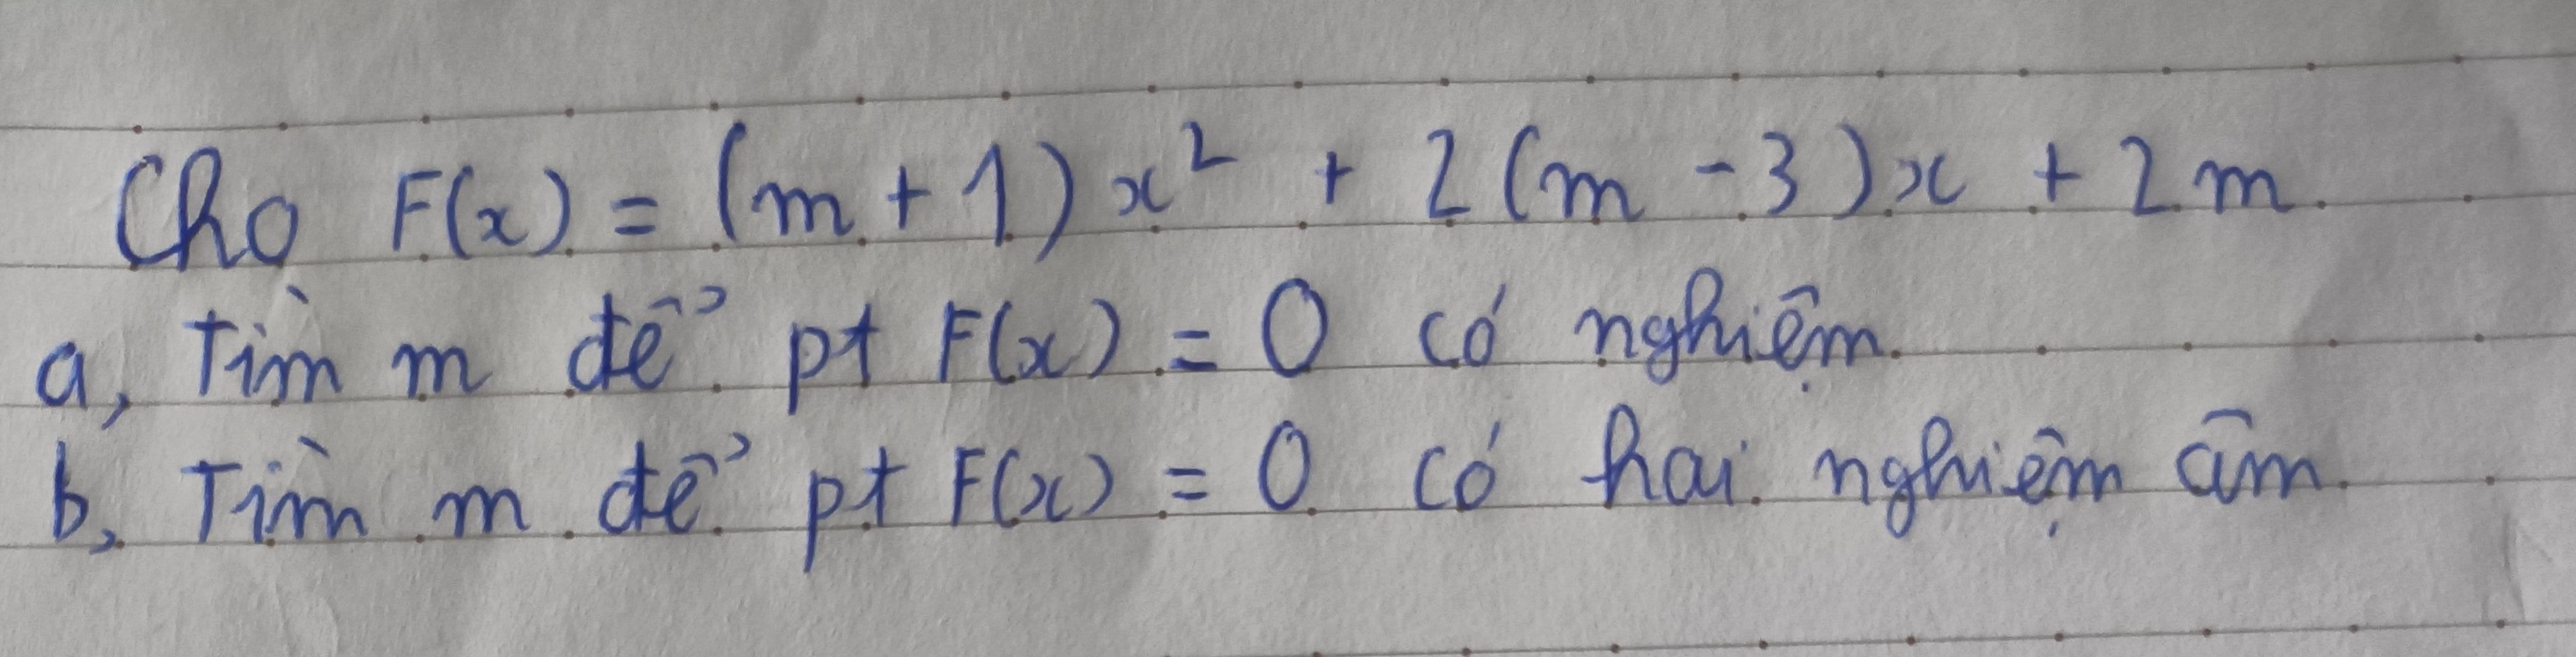 Cho F(x) = (m + 1)x² + 2(m - 3)x + 2m.
a, Tìm m để pt F(x) = 0 có nghiệm.
b, Tìm m để pt F(x) = 0 có hai nghiệm âm.